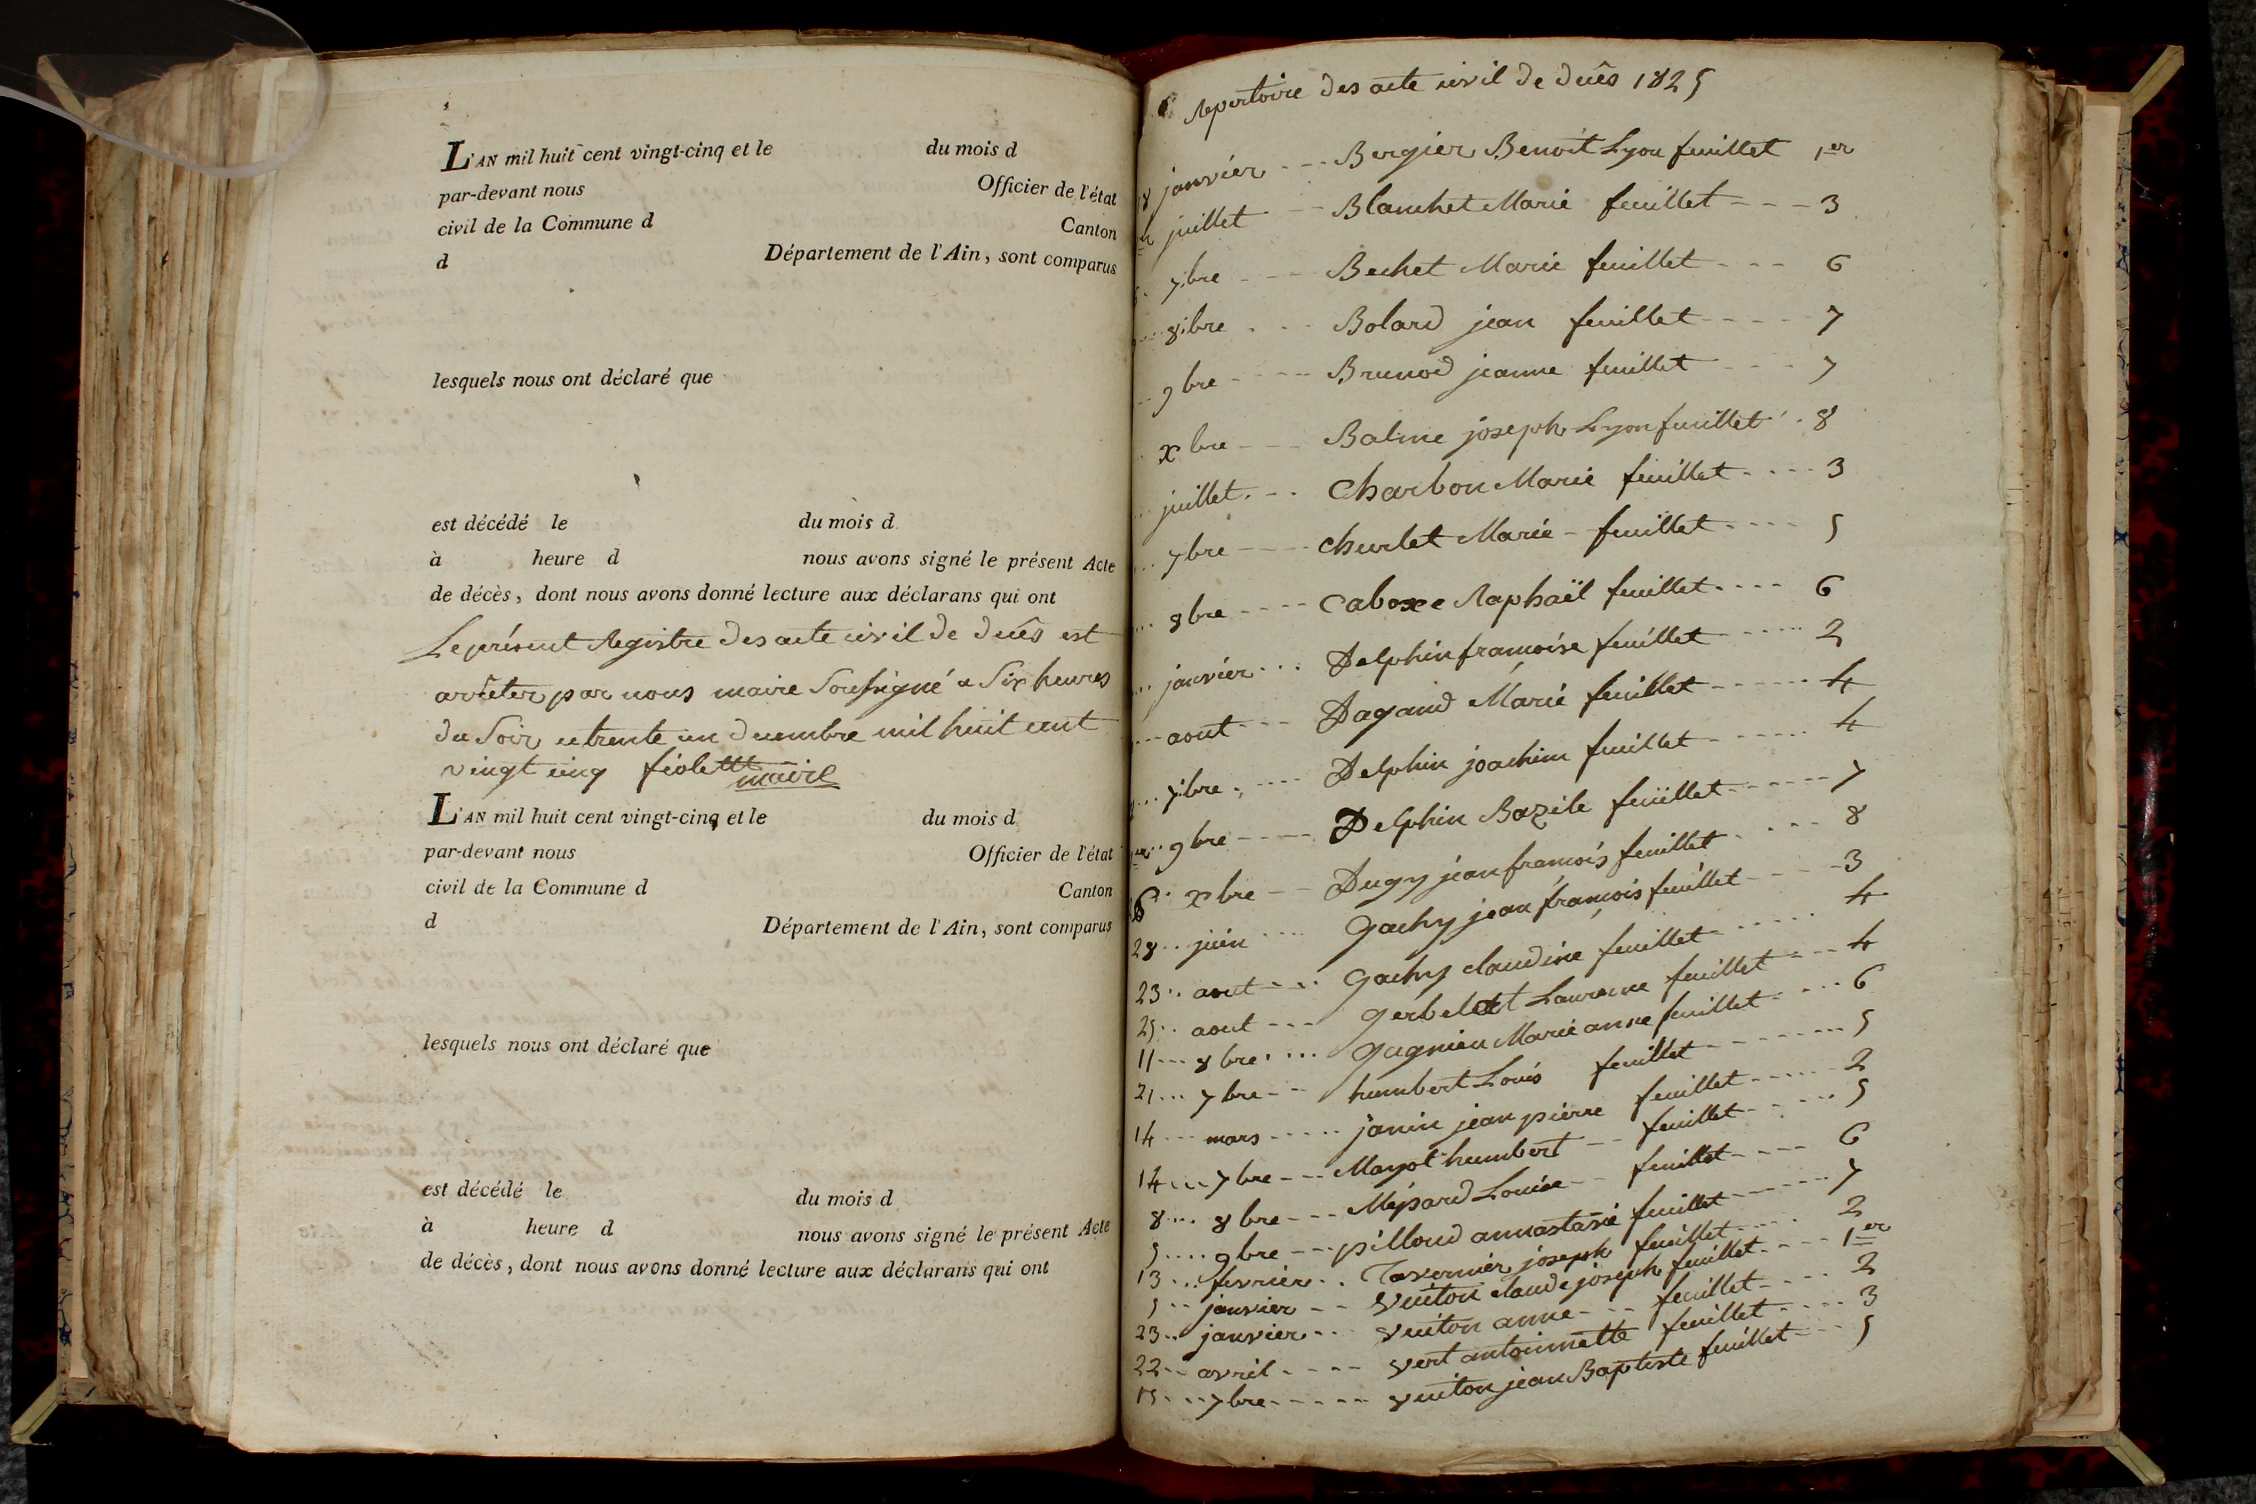 L'AN mil huit cent vingt-cinq et le du mois d
par-devant nous Officier de l'état
civil de la Commune d Canton
d Département de l'Ain, sont comparus
lesquels nous ont déclaré que
est décédé le du mois d
à heure d nous avons signé le présent Acte
de décès, dont nous avons donné lecture aux déclarans qui ont
Le présent Registre des acte civil de decês est
arrêter par nous maire Soussigné a Six heures
du Soir ce trente un decembre mil huit cent
vingt cinq maire
L'AN mil huit cent vingt-cinq et le du mois d
par-devant nous Officier de l'état
civil de la Commune d Canton
d Département de l'Ain, sont comparus
lesquels nous ont déclaré que
est décédé le du mois d
à heure d nous avons signé le présent Acte
de décès, dont nous avons donné lecture aux déclarans qui ont
Repertoire des acte civil de decês 1825
janvier --- Bergier Benoit Lyon feuillet 1er
juillet -- Blanchet Marie feuillet --- 3
7bre --- Bechet Marie feuillet --- 6
8bre ... Bolard jean feuillet ---- 7
9bre ---- Brunod jeanne feuillet ---- 7
xbre --- Balme joseph Lyon feuillet . 8
juillet ... Charbon Marie feuillet ---- 3
7bre ---- churlet Marie - feuillet ---- 5
8bre ---- Caboxe Raphaël feuillet ---- 6
janvier ... Delphin francoise feuillet ---- 2
aout --- Dagand Marie feuillet ---- 4
7bre ---- Delphin joachim feuillet ---- 4
9bre ---- Delphin Bazile feuillet ---- 7
6 xbre -- Dugy jean francois feuillet ---- 8
28 .. juin .... Gachy jean françois feuillet ---- 3
23 .. aout --- Gachy claudine feuillet ---- 4
25 .. aout --- gerbelot Laurence feuillet ---- 4
11 --- 8bre .... Gugnieu Marie anne feuillet ---- 6
21 ... 7bre -- humbert Louis feuillet ---- 5
14 --- mars ---- janin jean pierre feuillet ---- 2
14 ... 7bre --- Mayot humbert -- feuillet ---- 5
8 ... 8bre --- Mépard Louise -- feuillet ---- 6
5 .... 9bre --- pilloud annastasie feuillet ---- 7
13 ... fevrier .. Tavernier joseph feuillet ---- 2
5 -- janvier -- Vuiton claude joseph feuillet ---- 1er
23 .. janvier ... Vuiton anne --- feuillet ---- 2
22 -- avril ---- Vert antoinnette feuillet ---- 3
15 --- 7bre ----- Vuiton jean Baptiste feuillet --- 5